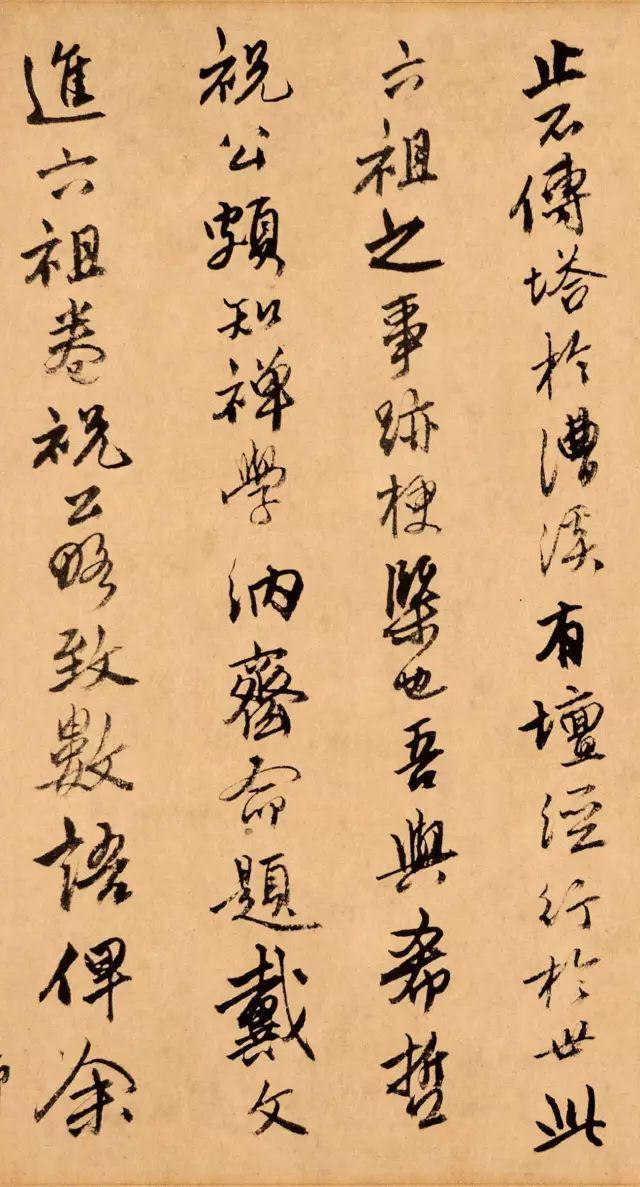 止不傳塔於漕溪有壇經行於世此
六祖之事跡梗槩也吾與希哲
祝公頗知禪學納齋命題戴文
進六祖卷祝公略致數語俾余